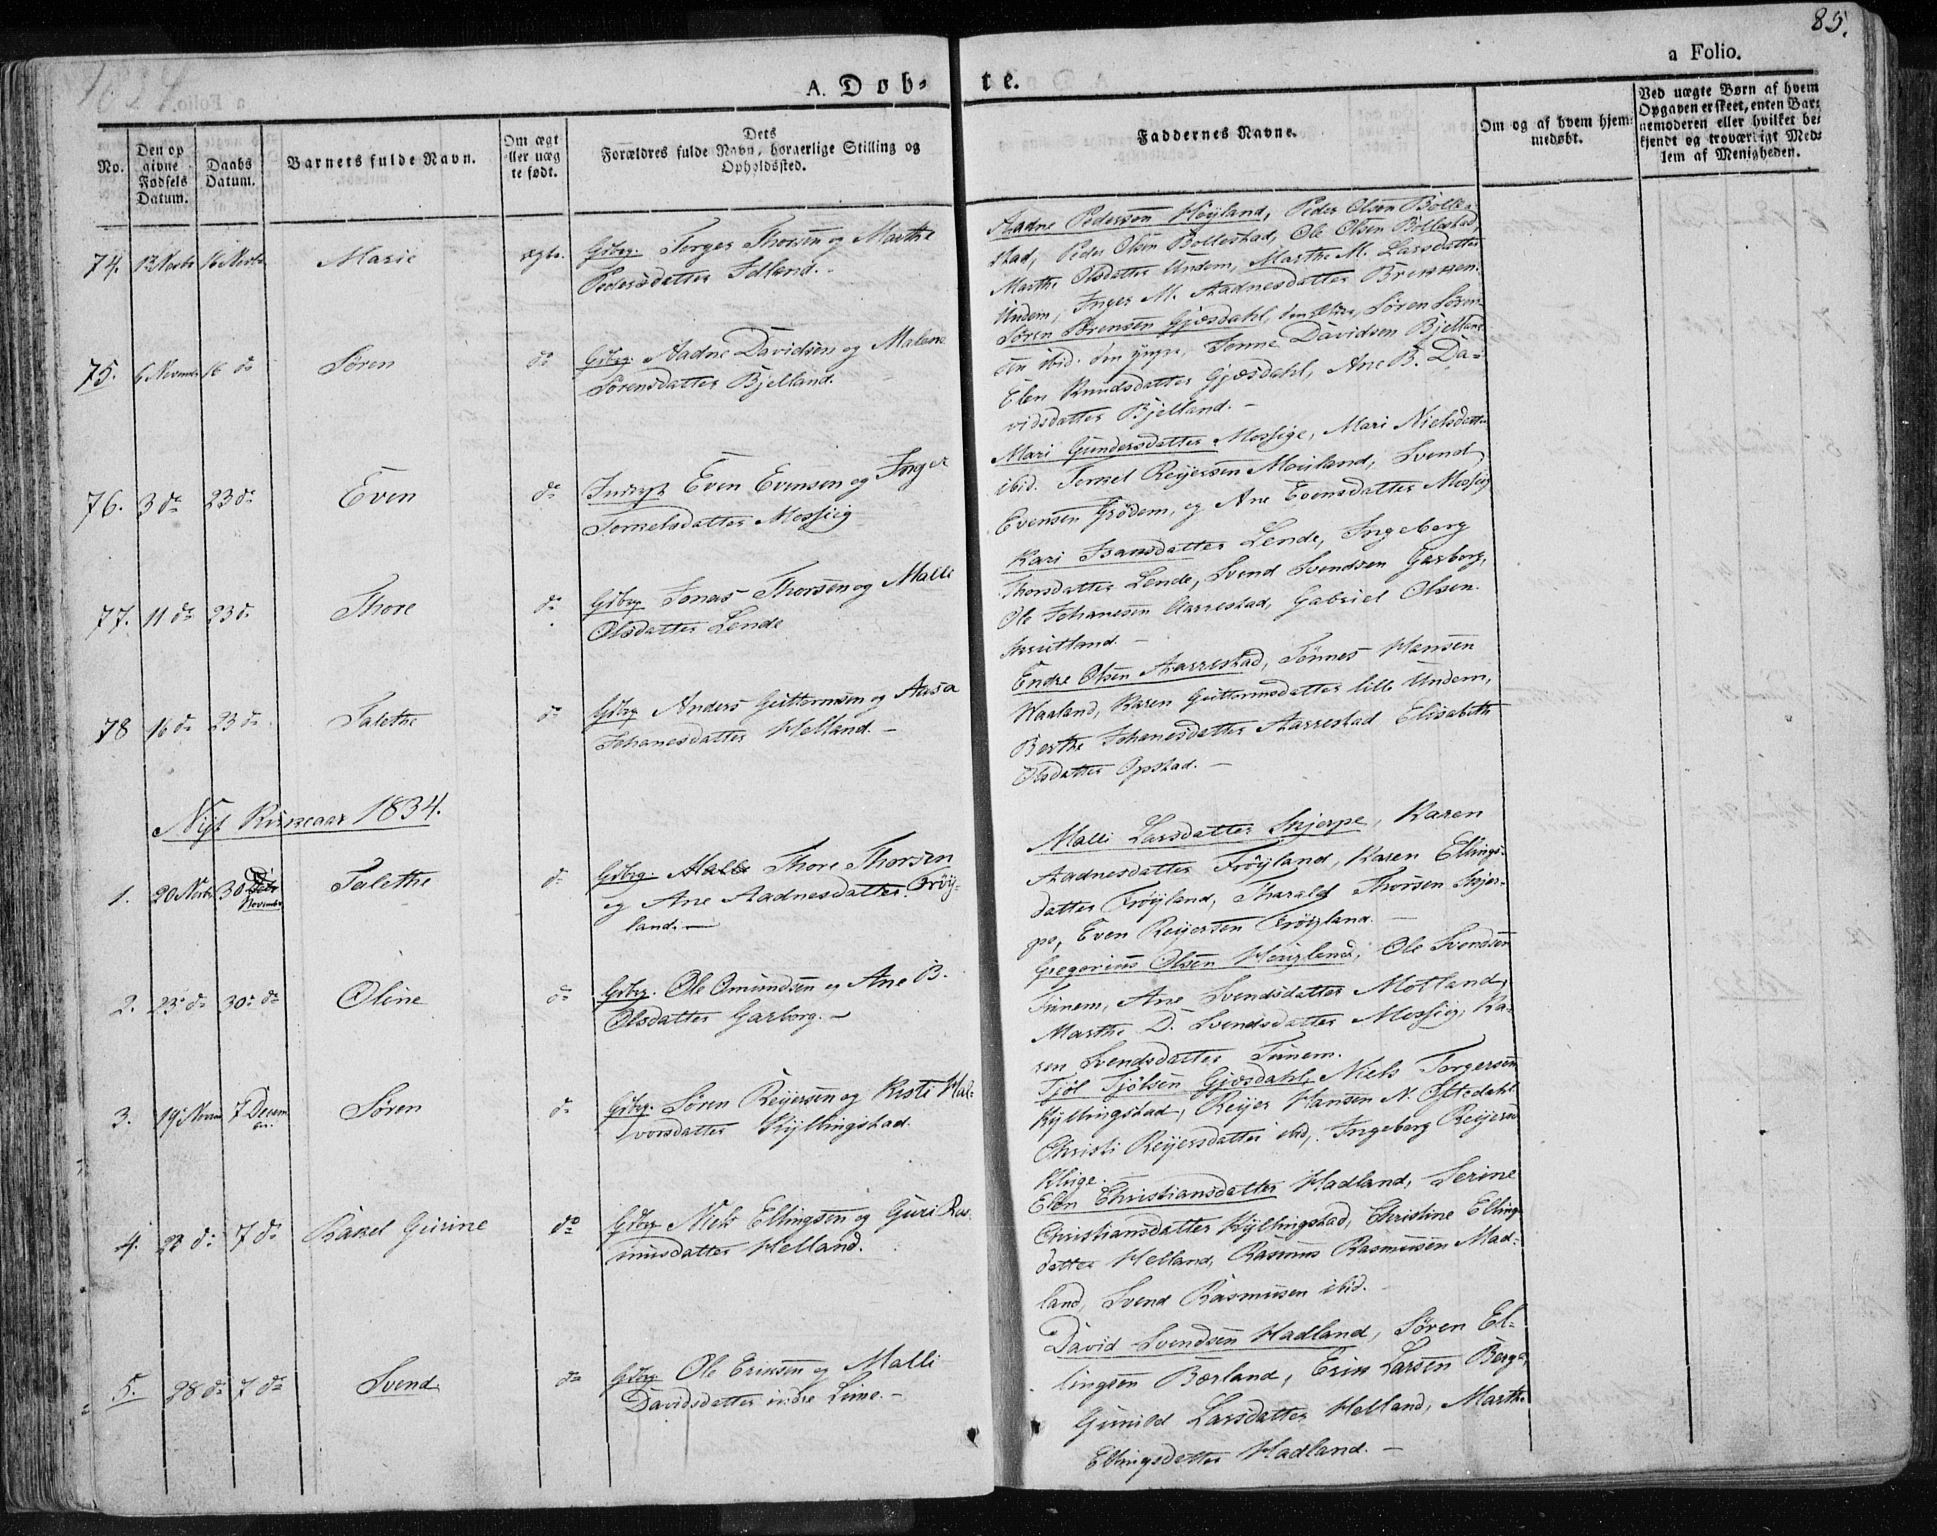 1834
A. Døb-
te.
a Folio.
85.
No.
Den op
givne
Fødsels
Datum.
Daabs
Datum.
Barnets fulde Navn.
Om ægt
eller uæg
te født.
Dets
Forældres fulde Navn, borgerlige Stilling og
Opholdssted.
Faddernes Navne.
Om og af hvem hjem-
medøbt.
Ved uægte Børn af hvem
Opgaven er skeet, enten Bar-
nemoderen eller hvilket be-
kjendt og troværdigt Med-
lem af Menigheden.
74. 12 Novbr 16 Novbr Marie ægte. Gbrg. Torger Thorsen og Marthe
Pedersdatter Idland.
Aadne Pedersen Høyland, Peder Olsen Bolle-
stad, Peder Olsen Bollestad, Ole Olsen Bollestad,
Marthe Olsdatter Undem, Marthe M. Larsdatter
Undem, Inger M. Aadnesdatter Brekken.
75. 6 Novembr 16 do Søren do Gbrg. Aadne Davidsen og Malene
Sørensdatter Bjelland.
Søren Sørensen Gjesdahl, den Ældre, Søren Søren-
sen ibid. den yngre, Tønne Davidsen Bjelland
Elen Knudsdatter Gjesdahl, Ane B. Da-
vidsdatter Bjelland. –
76. 3 do 23 do Even do Inderst Even Evensen og Inger
Torkelsdatter Mossig
Mari Gundersdatter Mossige, Mari Nielsdatter
ibid. Torkel Reiersen Moiland, Svend
Evensen Grødem, og Ane Evensdatter Mossig
77. 11 do 23 do Thore do Gbrg Jonas Thorsen og Malli
Olsdatter Lende
Kari Isansdatter Lende, Ingeborg
Thorsdatter Lende, Svend Svendsen Garborg,
Ole Johanesen Aarrestad, Gabriel Olsen
Skrutland. –
78 16 do 23 do Talethe do Gbrg Anders Guttormsen og Aasa
Johanesdatter Helland. –
Endre Olsen Aarrestad, Tønnes Hansen
Waaland, Karen Guttormsdatter lille Undem,
Berthe Johanesdatter Aarrestad Elisabeth
Olsdatter Opstad. –
Nyt Kirkeaar 1834.
1. 20 Novbr 30 November Talethe do Gbrg. Thore Thorsen
og Ane Aadnesdatter Frøy-
land. –
Malli Larsdatter Skjerpe, Karen
Aadnesdatter Frøyland, Karen Ellings-
datter Frøyland, Tharald Thorsen Skjer-
pe, Even Reiersen Frøyland. –
2. 23 do 30 do Oline do Gbrg. Ole Omundsen og Ane B.
Olsdatter Garborg. –
Gregorius Olsen Hauglend, Ole Svendsen
Tunem, Ane Svendsdatter Motland,
Marthe D. Svendsdatter Mossig, Ka-
ren Svendsdatter Tunem.
3. 19 Novem 7 Decem Søren do Gbrg. Søren Reiersen og Kisti Hal-
vorsdatter Kyllingstad.
Tjøl Tjølsen Gjesdahl, Niels Torgersen
Kyllingstad, Reier Hansen N. Oftedahl
Christi Reiersdatter ibid, Ingeborg Reiersd
Kluge.
4. 23 do 7 do Rakel Gurine do Gbrg Niels Ellingsen og Guri Ras-
musdatter Helland.
Elen Christiansdatter Hadland, Serine
Christiansdatter Kyllingstad, Christine Ellings
datter Helland, Rasmus Rasmussen Mad-
land, Svend Rasmussen ibid. –
5. 28 do 7 do Svend do Gbrg Ole Eriksen og Malli
Davidsdatter indre Lime. –
David Svendsen Hadland, Søren El-
lingsen Børland, Erik Larsen Berge,
Gunild Larsdatter Helland, Marthe
Ellingsdatter Hadland. –